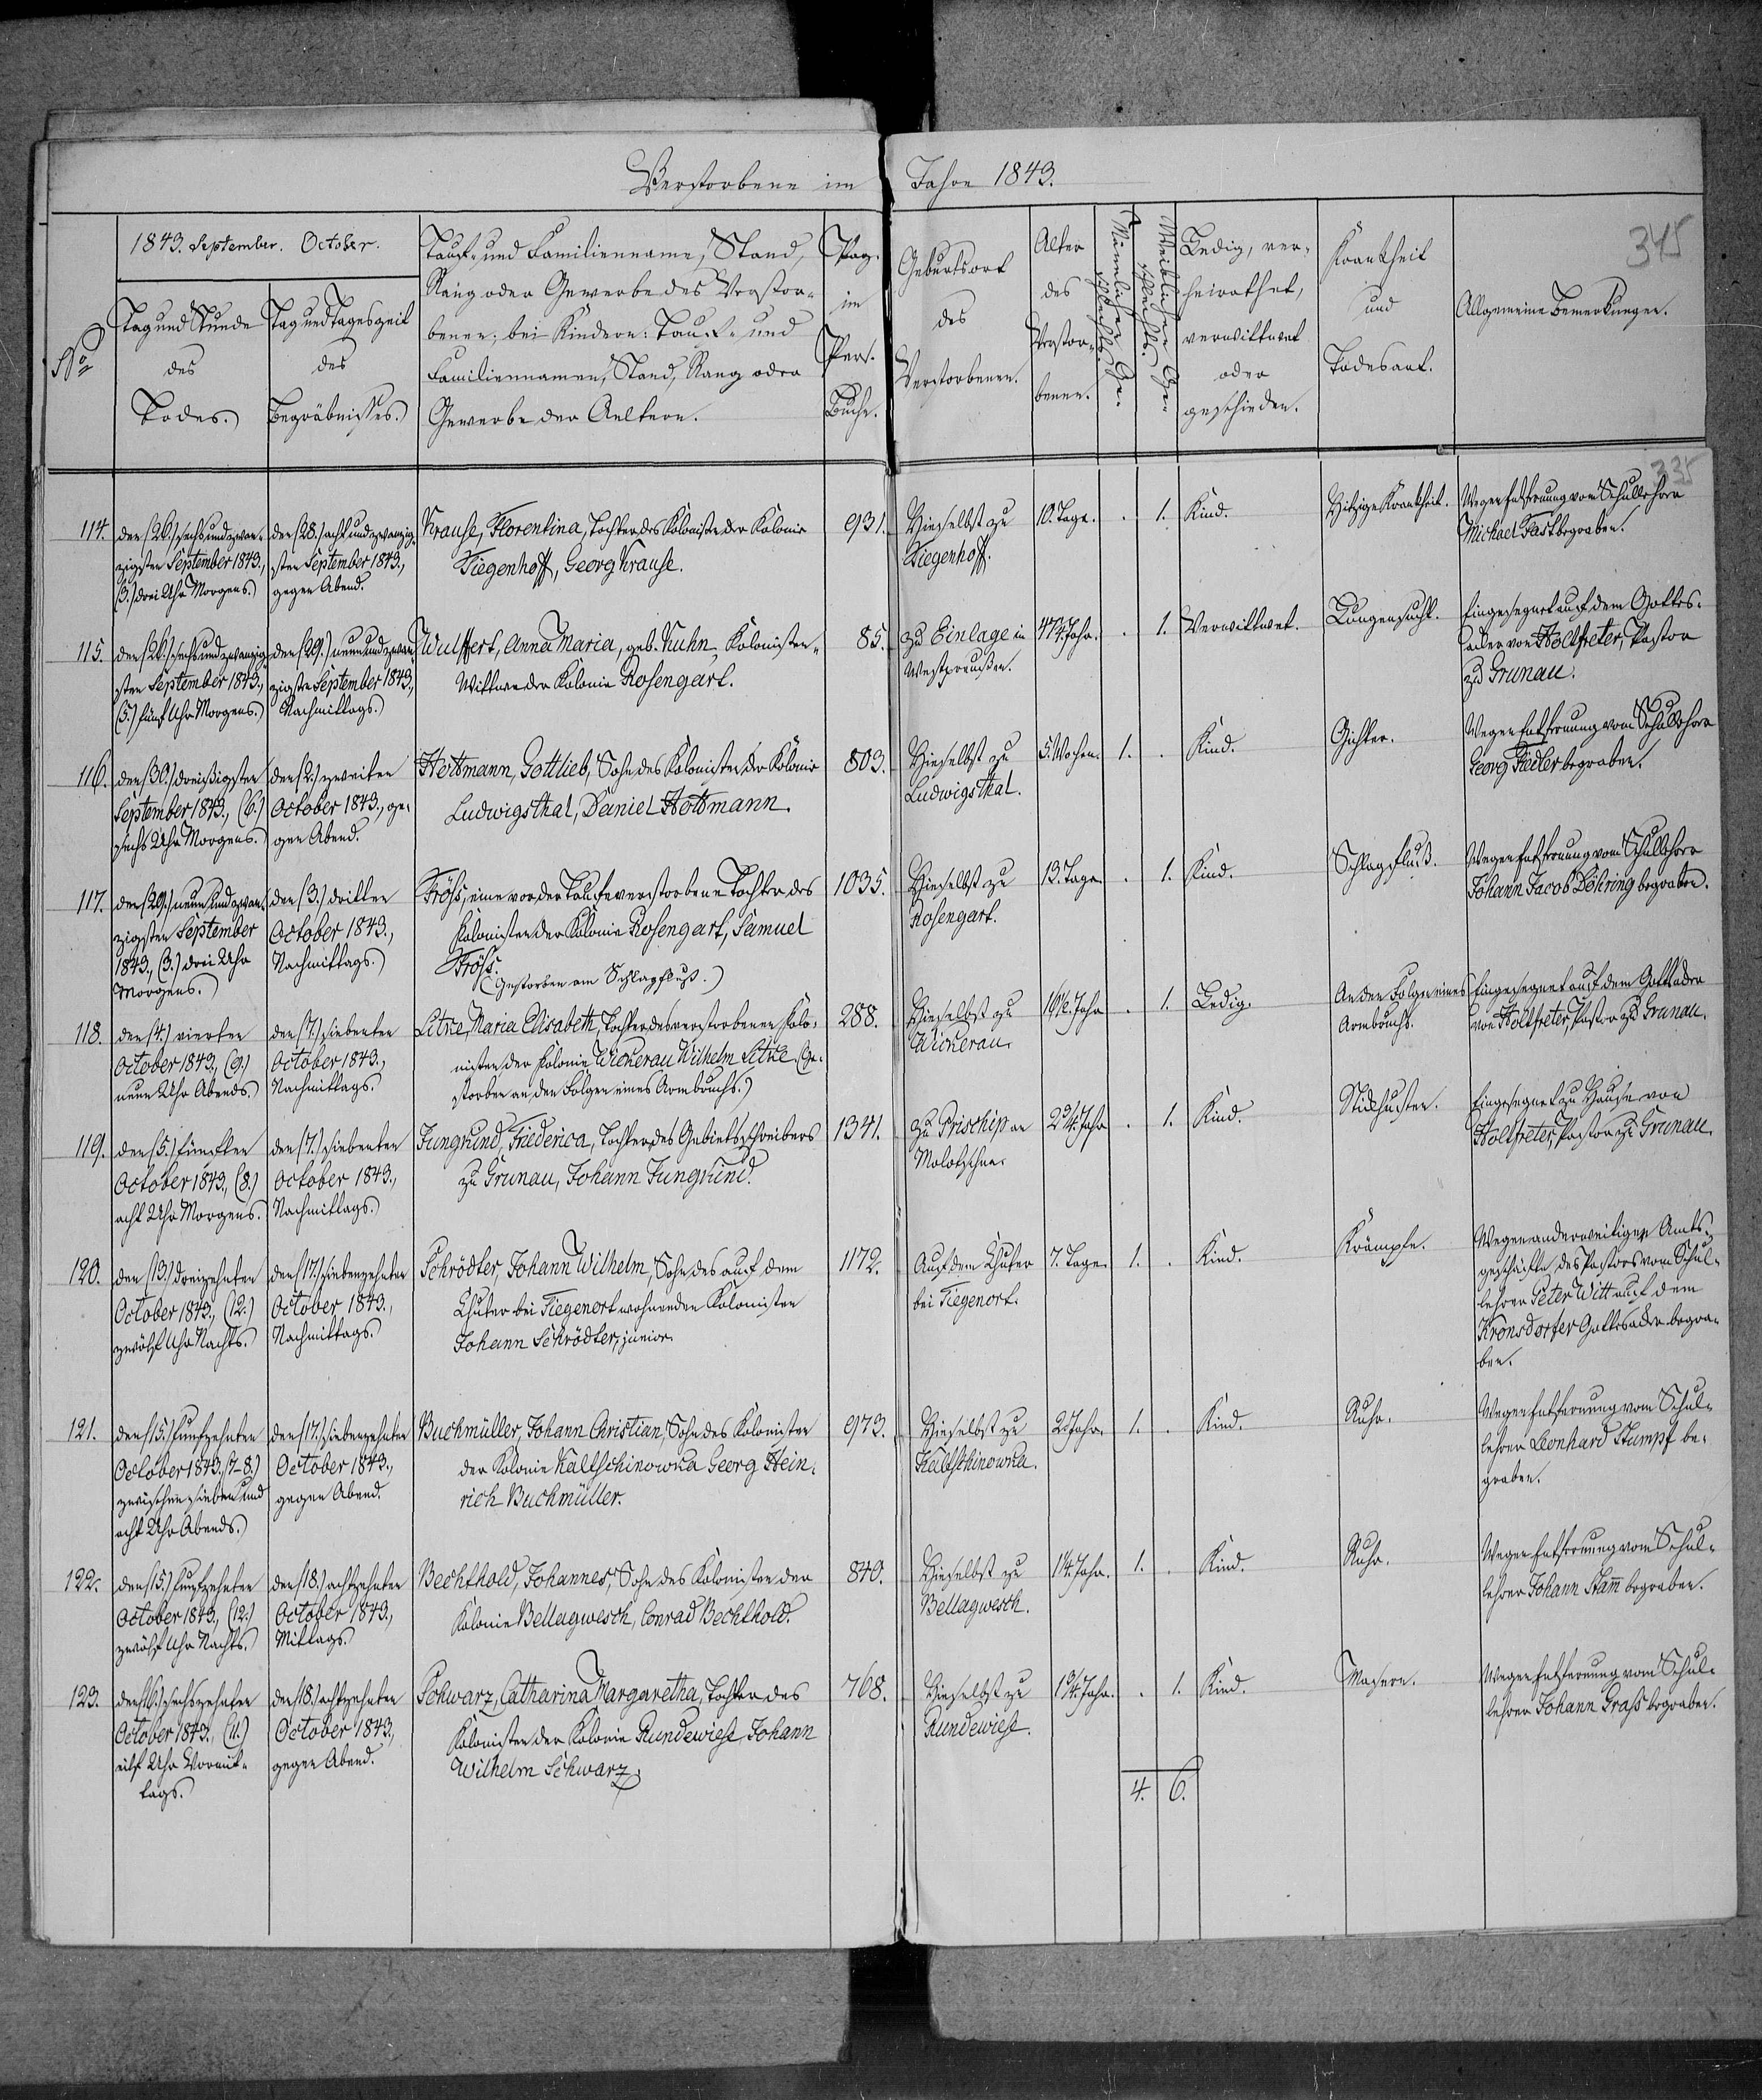 Verstorbene im Jahre 1843.
345
1843. September. October.
No
Tag und Stunde
des
Todes.
Tag und Tageszeit
des
Begräbnisses.
Tauf- und Familienname, Stand,
Rang oder Gewerbe des Verstor-
benen; bei Kindern: Tauf- und
Familiennamen, Stand, Rang oder
Gewerbe der Aeltern.
Pag.
im
Pers.
Buche.
Geburtsort
des
Verstorbenen.
Alter
des
Verstor-
benen.
Männlichen Ge-
schlechts.
Weiblichen Ge-
schlechts.
Ledig, ver-
heirathet,
verwittwet
oder
geschieden.
Krankheit
und
Todesart.
Allgemeine Bemerkungen.
335
114.
den (26.) sechsundzwan-
zigsten September 1843.,
(3.) drei Uhr Morgens.
den (28.) achtundzwanzig-
sten September 1843.,
gegen Abend.
Krause, Florentina, Tochter des Kolonisten der Kolonie
Tiegenhoff, Georg Krause.
931.
Hieselbst zu
Tiegenhoff.
10. Tage.
. 1.
Kind.
Hitzige Krankheit.
Wegen Entfernung vom Schullehrer
Michael Fast begraben.
115.
den (26.) sechsundzwanzig-
sten September 1843.,
(5.) fünf Uhr Morgens.
den (29.) neunundzwan-
zigsten September 1843.,
Nachmittags.
Wulffert, Anna Maria, geb. Kuhn, Kolonisten-
Wittwe der Kolonie Rosengart.
85.
zu Einlage in
Westpreußen.
Jahr.
. 1.
Verwittwet.
Lungensucht.
Eingesegnet auf dem Gottes-
acker von Holtfreter, Pastor
zu Grunau.
116.
den (30.) dreißigsten
September 1843., (6.)
sechs Uhr Morgens.
den (2.) zweiten
October 1843., ge-
gen Abend.
Hottmann, Gottlieb, Sohn des Kolonisten der Kolonie
Ludwigsthal, Daniel Hottmann.
803.
Hieselbst zu
Ludwigsthal.
5. Wochen.
1. .
Kind.
Gichter.
Wegen Entfernung vom Schullehrer
Georg Fiedler begraben.
117.
den (29.) neunundzwan-
zigsten September
1843., (3.) drei Uhr
Morgens.
den (3.) dritten
October 1843.,
Nachmittags.
Fröss, eine vor der Taufe verstorbene Tochter des
Kolonisten der Kolonie Rosengart, Samuel
Fröss.
(Gestorben am Schlagfluß.)
1035.
Hieselbst zu
Rosengart.
13. Tage.
. 1.
Kind.
Schlagfluß.
Wegen Entfernung vom Schullehrer
Johann Jacob Döhring begraben.
118.
den (4.) vierten
October 1843., (9.)
neun Uhr Abends.
den (7.) siebenten
October 1843.,
Nachmittags.
Litke, Maria Elisabeth, Tochter des verstorbenen Kolo-
nisten der Kolonie Wickerau Wilhelm Litke. (Ge-
storben an den Folgen eines Armbruchs.)
288.
Hieselbst zu
Wickerau.
16½. Jahr
. 1.
Ledig.
An den Folgen eines
Armbruchs.
Eingesegnet auf dem Gottesacker
von Holtfreter, Pastor zu Grunau.
119.
den (5.) fünften
October 1843., (8.)
acht Uhr Morgens.
den (7.) siebenten
October 1843.,
Nachmittags.
Jungkund, Friederica, Tochter des Gebietsschreibers
zu Grunau, Johann Jungkund.
1341.
zu Prischip an
Molotschna.
2¾. Jahr
. 1.
Kind.
Stickhusten.
Eingesegnet zu Hause von
Holtfreter, Pastor zu Grunau.
120.
den (13.) dreizehnten
October 1843., (12.)
zwölf Uhr Nachts.
den (17.) siebenzehnten
October 1843.,
Nachmittags.
Schrödter, Johann Wilhelm, Sohn des auf dem
Chutor bei Tiegenort wohnenden Kolonisten
Johann Schrödter, junior.
1172.
Auf dem Chutor
bei Tiegenort.
7. Tage.
1. .
Kind.
Krämpfe.
Wegen anderweitigen Amts-
geschäfte des Pastors vom Schul-
lehrer Peter Witt auf dem
Kronsdorfer Gottesacker begra-
ben.
121.
den (15.) funfzehnten
October 1843., (7-8.)
zwischen sieben und
acht Uhr Abends.
den (17.) siebenzehnten
October 1843.,
gegen Abend.
Buchmüller, Johann Christian, Sohn des Kolonisten
der Kolonie Kaltschinowka Georg Hein-
rich Buchmüller.
973.
Hieselbst zu
Kaltschinowka.
2. Jahr.
1. .
Kind.
Ruhr.
Wegen Entfernung vom Schul-
lehrer Leonhard Stumpf be-
graben.
122.
den (15.) funfzehnten
October 1843., (12.)
zwölf Uhr Nachts.
den (18.) achtzehnten
October 1843.,
Mittags.
Bechthold, Johannes, Sohn des Kolonisten der
Kolonie Bellagwesch, Conrad Bechthold.
840.
Hieselbst zu
Bellagwesch.
1¼. Jahr.
1. .
Kind.
Ruhr.
Wegen Entfernung vom Schul-
lehrer Johann Stam̅ begraben.
123.
den (16.) sechszehnten
October 1843., (11.)
eilf Uhr Vormit-
tags.
den (18.) achtzehnten
October 1843.,
gegen Abend.
Schwarz, Catharina Margaretha, Tochter des
Kolonisten der Kolonie Rundewiese Johann
Wilhelm Schwarz.
768.
Hieselbst zu
Rundewiese.
1¾. Jahr.
. 1.
Kind.
Masern.
Wegen Entfernung vom Schul-
lehrer Johann Grass begraben.
4. 6.